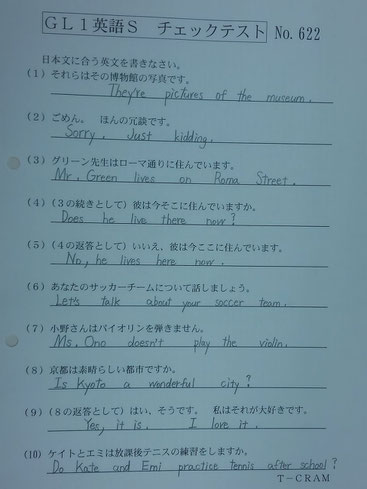 GL1英語S チェックテスト No. 622
日本文に合う英文を書きなさい。
(1) それらはその博物館の写真です。
They're pictures of the museum.
(2) ごめん。 ほんの冗談です。
Sorry. Just kidding.
(3) グリーン先生はローマ通りに住んでいます。
Mr. Green lives on Roma Street.
(4) (3の続きとして) 彼は今そこに住んでいますか。
Does he live there now?
(5) (4の返答として) いいえ、彼は今ここに住んでいます。
No, he lives here now.
(6) あなたのサッカーチームについて話しましょう。
Let's talk about your soccer team.
(7) 小野さんはバイオリンを弾きません。
Ms. Ono doesn't play the violin.
(8) 京都は素晴らしい都市ですか。
Is Kyoto a wonderful city?
(9) (8の返答として) はい、そうです。 私はそれが大好きです。
Yes, it is. I love it.
(10) ケイトとエミは放課後テニスの練習をしますか。
Do Kate and Emi practice tennis after school?
T-CRAM